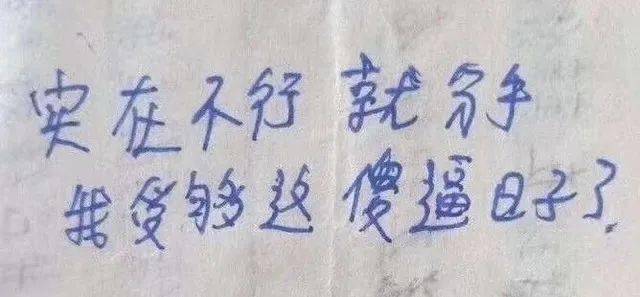 实在不行 就分手
我受够这 傻逼日子了.